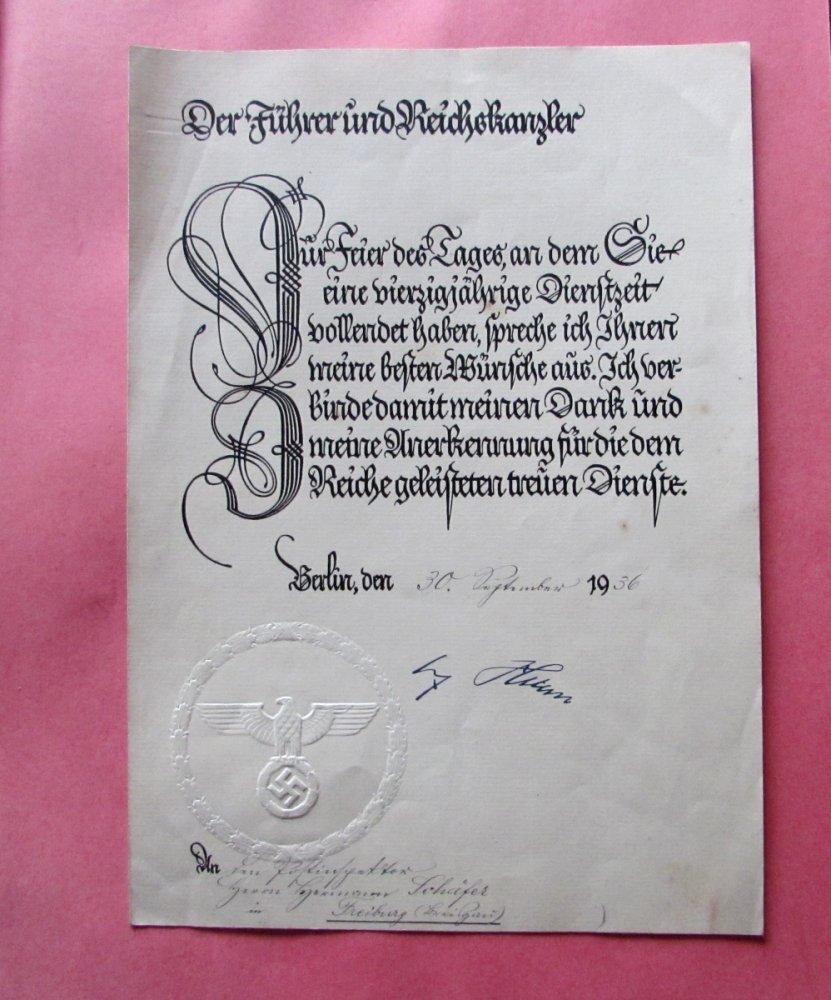 Der Führer und Reichskanzler
Zur Feier des Tages, an dem Sie
eine vierzigjährige Dienstzeit
vollendet haben, spreche ich Ihnen
meine besten Wünsche aus. Ich ver-
binde damit meinen Dank und
meine Anerkennung für die dem
Reiche geleisteten treuen Dienste.
Berlin, den 30. September 1936
An den Postinspektor
Herrn Hermann Schäfer
in Freiburg (Breisgau)